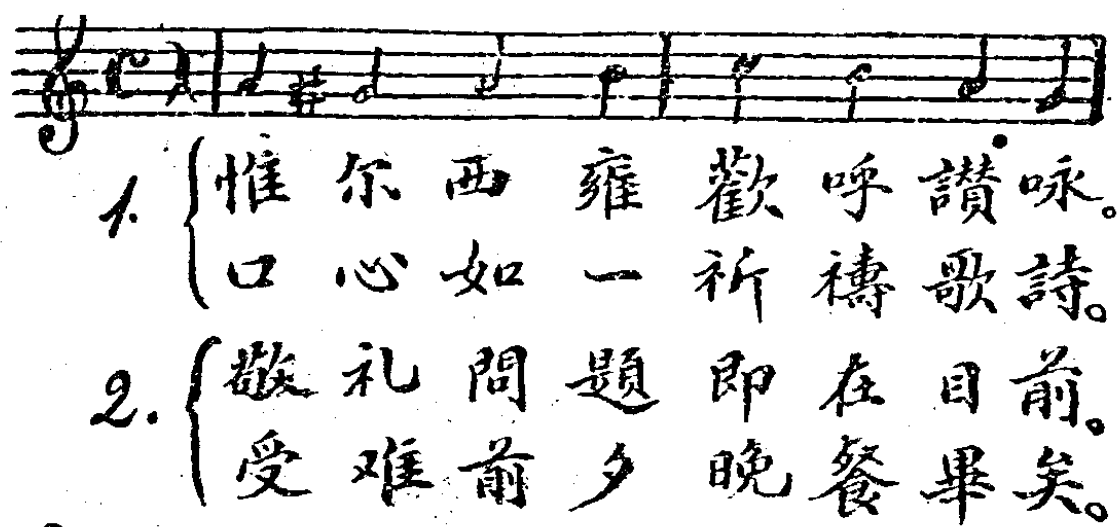 1. 惟尔西雍歡呼讃咏。
口心如一祈禱歌詩。
2. 敬礼問題即在目前。
受难前夕晚餐畢矣。